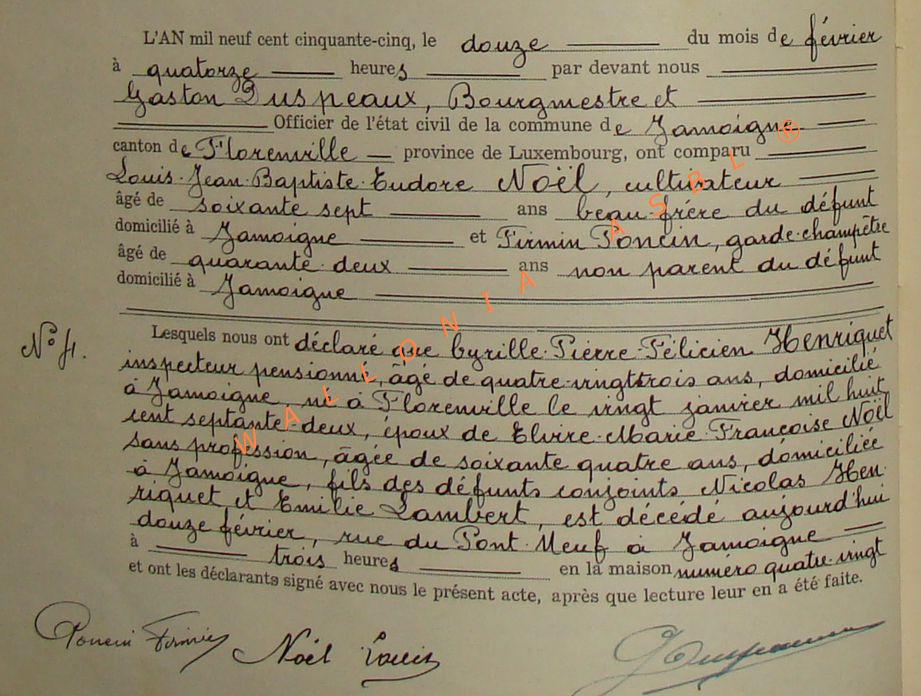 L'AN mil neuf cent cinquante-cinq, le douze du mois de février
à quatorze heures par devant nous
Gaston Duspeaux, Bourgmestre et
Officier de l'état civil de la commune de Jamoigne
canton de Florenville province de Luxembourg, ont comparu
Louis-Jean-Baptiste-Eudore Noël, cultivateur
âgé de soixante sept ans beau-frère du défunt
domicilié à Jamoigne et Firmin Poncin, garde-champêtre
âgé de quarante-deux ans non parent du défunt
domicilié à Jamoigne
N° 4. Lesquels nous ont déclaré que Cyrille-Pierre-Félicien Henriquet
inspecteur pensionné, âgé de quatre-vingt-trois ans, domicilié
à Jamoigne, né à Florenville le vingt janvier mil huit
cent septante-deux, époux de Elvire-Marie-Françoise Noël
sans profession, âgée de soixante quatre ans, domiciliée
à Jamoigne, fils des défunts conjoints Nicolas Hen-
riquet et Emilie Lambert, est décédé aujourd'hui
douze février, rue du Pont-Neuf à Jamoigne
à trois heures en la maison numero quatre-vingt
et ont les déclarants signé avec nous le présent acte, après que lecture leur en a été faite.
Poncin Firmin Noël Louis
WALLONIA ASBL ®